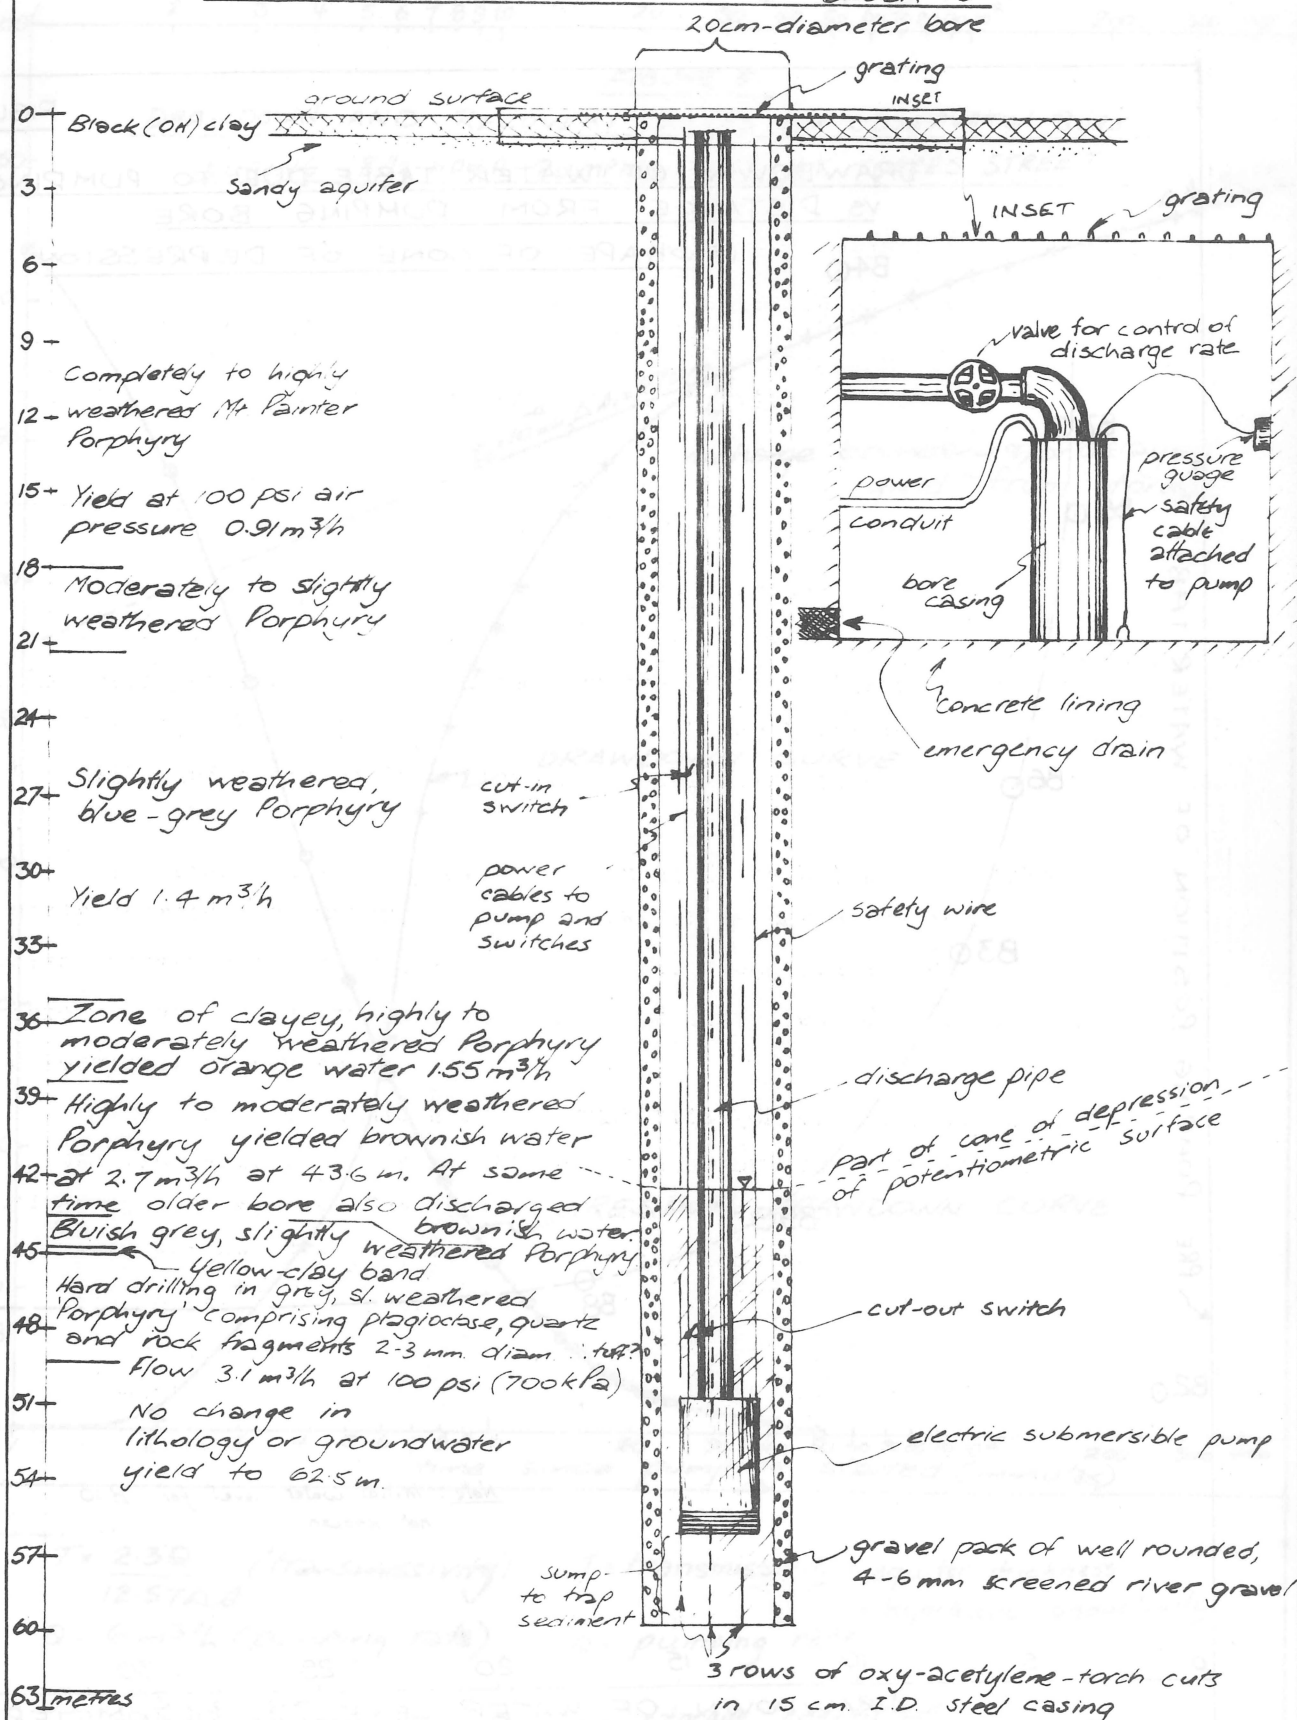 20cm-diameter bore
grating
INSET
ground surface
0
Black (OH) clay
Sandy aquifer
3
6
9
Completely to highly
12 weathered Mt Painter
Porphyry
15 Yield at 100 psi air
pressure 0.91 m³/h
18
Moderately to slightly
weathered Porphyry
21
24
Slightly weathered,
27
blue-grey Porphyry
30
Yield 1.4 m³/h
33
36 Zone of clayey, highly to
moderately weathered Porphyry
yielded orange water 1.55 m³/h
39 Highly to moderately weathered
Porphyry yielded brownish water
42 at 2.7 m³/h at 43.6 m. At same
time older bore also discharged
brownish water.
Bluish grey, slightly
weathered Porphyry
45
Yellow-clay band
Hard drilling in grey, sl. weathered
'Porphyry' comprising plagioclase, quartz
48 and rock fragments 2-3 mm. diam ∴ tuff?
Flow 3.1 m³/h at 100 psi (700 kPa)
51
No change in
lithology or groundwater
yield to 62.5 m.
54
57
60
63 metres
INSET
grating
valve for control of
discharge rate
power
conduit
pressure
guage
safety
cable
attached
to pump
bore
casing
concrete lining
emergency drain
cut-in
switch
power
cables to
pump and
switches
safety wire
discharge pipe
part of cone of depression
of potentiometric surface
cut-out switch
electric submersible pump
gravel pack of well rounded,
4-6 mm screened river gravel
sump
to trap
sediment
3 rows of oxy-acetylene-torch cuts
in 15 cm. I.D. steel casing